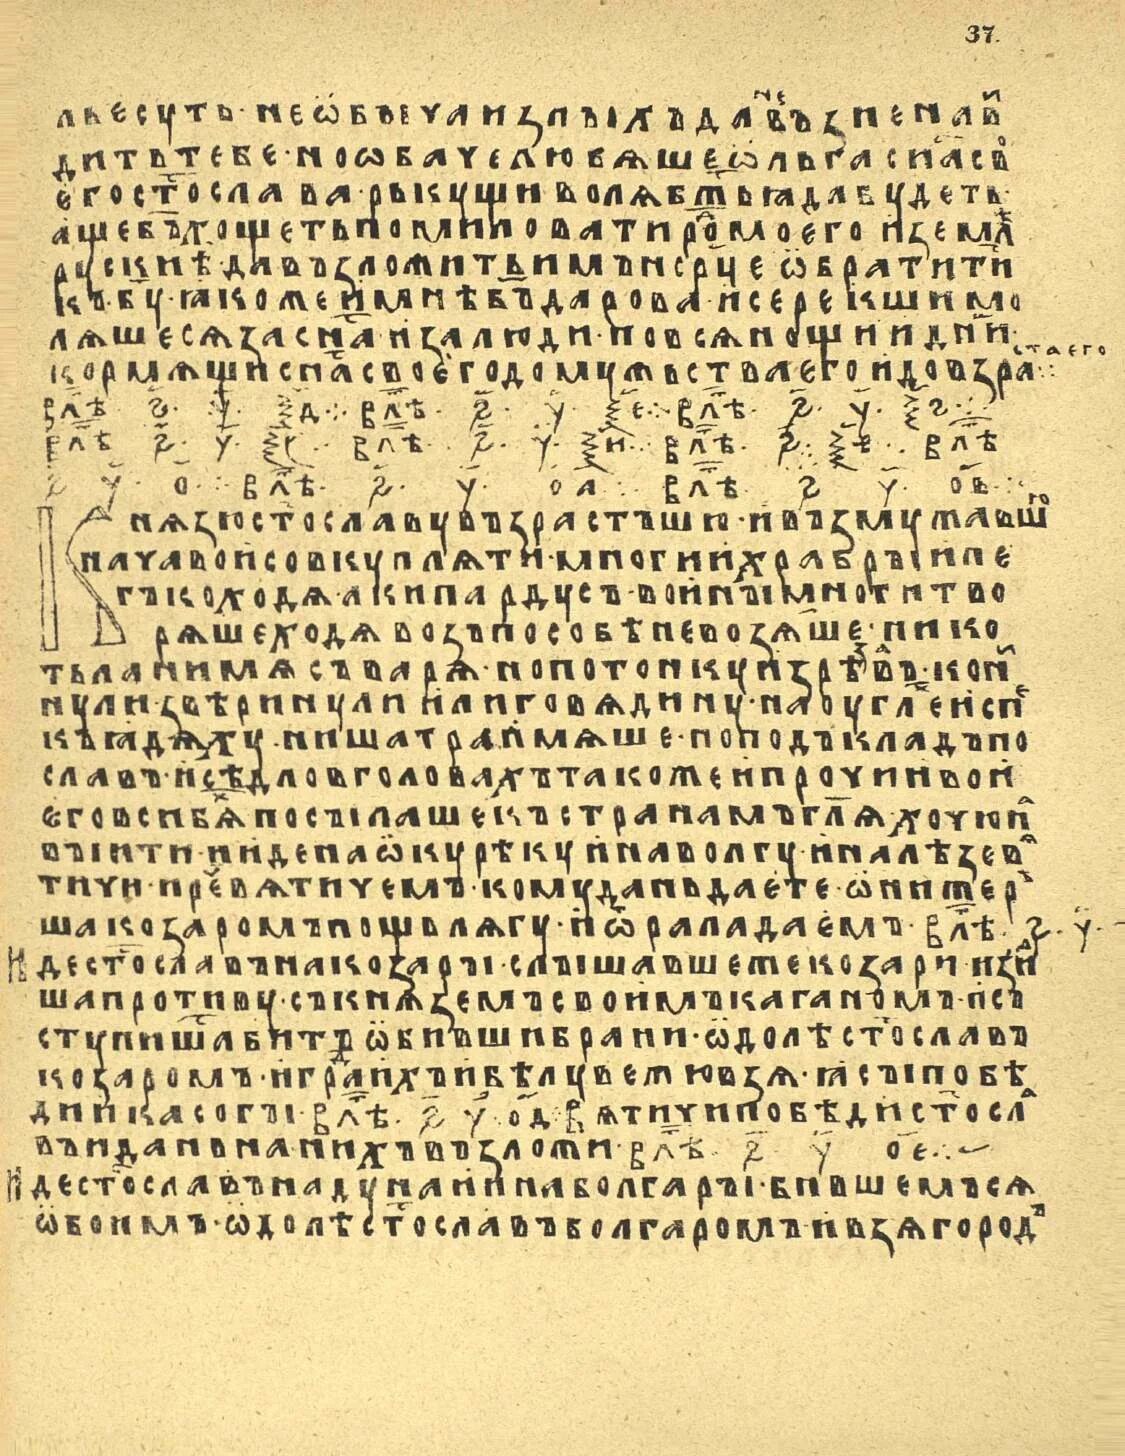 37.
лъ есуть· не ѿ бъіуа и злъіхъ дл҃ вънеⷤ въ зненавⷩ
дить тебе· но ѡбауе любяше ѡльга сн҃а свᲂ
его ст҃ослава· рькущи воля бж҃ьꙗ да будеть·
аще бъ҃ хощеть помиловати рᲂⷣ моего и земл҄ѣ
рускиѣ· да възложить имъ н ср҃це ѡ҃братити
къ б҃у· ꙗкоже и мнѣ бъ҃ дарова· и се рекши мо
ляшеся за сн҃а и за люди· по вся нощи и дн҃и·
кормящи сн҃а своего до мужьства его и до взраста его·:
в лⷮѣ ·҂ѕ҃· у҃· ѯ҃д·:· в лⷮѣ ·҂ѕ҃· у҃· ѯ҃е·:· в лⷮѣ ·҂ѕ҃· у҃· ѯ҃ѕ·:·
в лⷮѣ ·҂ѕ҃· у҃· ѯ҃з· в лⷮѣ ·҂ѕ҃· у҃· ѯ҃и·:· в лⷮѣ ·҂ѕ҃· ѯ҃ѳ· в лⷮѣ
҂ѕ҃· у҃· о҃·:· в лⷮѣ· ҂ѕ҃· у҃· о҃а·:· в лⷮѣ· ҂ѕ҃ у҃· о҃в·:·
Князю ст҃ославу възрастъшю· и възмужавшⷢᲂ
науа вои совкупляти· многи и храбръі и ле
гъко ходя· аки пардусъ· воинъі многи тво
ряше ходя возъ по собѣ не возяше· ни ко
тьла ни мяс ъваря· но по тонку изрѣзавъ· конⷩ
ину ли· звѣрину ли или говядину· на оугле испе
къ ꙗдяху· ни шатра имяше· но подъкладъ по
славъ· и сѣдло в головахъ такоже и проуии вои
его вси бя҃х посъілаше къ странамъ гл҃я· хоую нⷶ
въі ити· и иде на ѡ҃ку рѣку и на волгу· и налѣзе вⷶ
тиуи· и реⷱ вятиуемъ· кому дань даете· ѡни же рⷺ
ша козаромъ по щьлягу· и ѿ рала даемъ· в лⷮѣ· ҂ѕ҃· у҃·
Иде ст҃ославъ на козаръі· слъішавше же козари· изиⷣ
ша противу· съ князємъ своимъ каганомъ· и съ
ступиша с битъ ѡ҃ бивъши брани· ѡ҃долѣ ст҃ославъ
козаромъ· и граⷣ ихъ и бѣлу вежю взя· ꙗсъі побѣ
ди и касогъі· в лⷮѣ· ҂ѕ҃ у҃· о҃д· Вятиуи побѣди ст҃ослⷶ
въ и дань на нихъ възложи· в лⷮѣ· ҂ѕ҃ у҃ о҃е·:·
Иде ст҃ославъ на дунаи и на болгаръі· бившемъся
ѡ҃боимъ· ѡ҃долѣ ст҃ославъ болгаромъ· и взя городⷺ